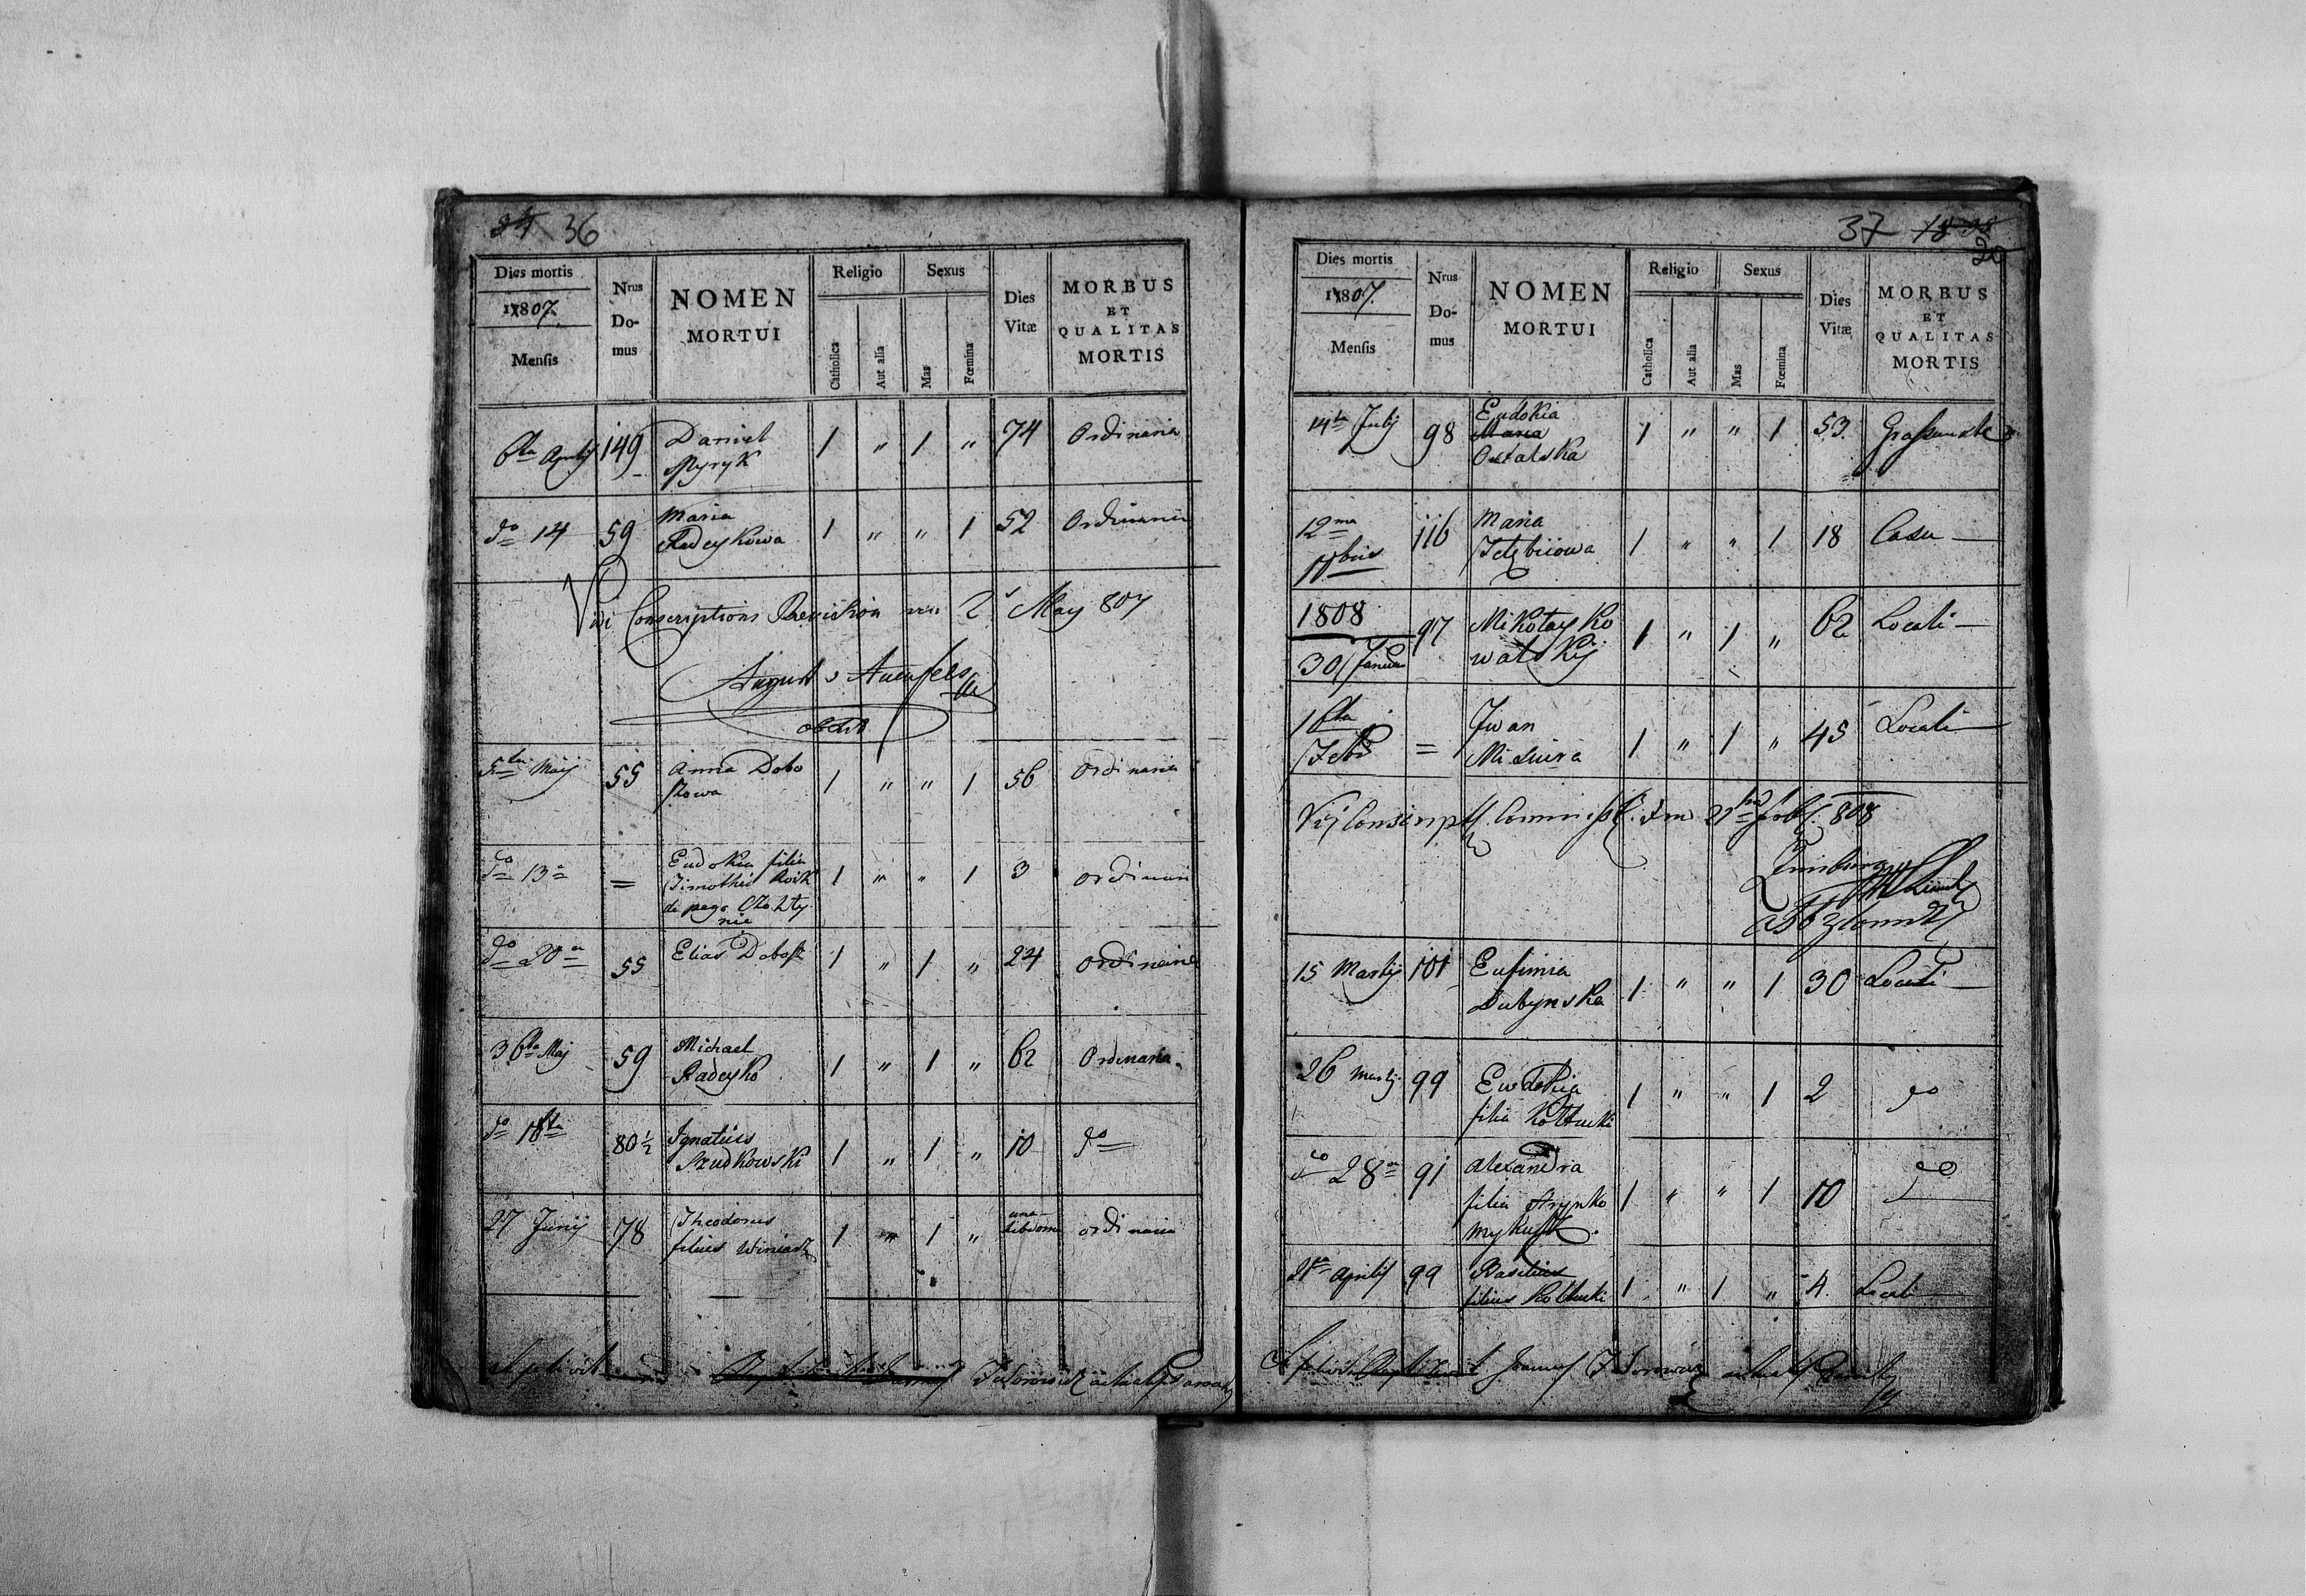 34 36
Dies mortis
1807.
Mensis
Nrus
Do-
mus
NOMEN
MORTUI
Religio
Catholica
Aut alia
Sexus
Mas
Fœmina
Dies
Vitæ
MORBUS
ET
QUALITAS
MORTIS
6ta Aprilis 149 Daniel 1 " 1 " 74 Ordinaria
Myryk
do 14 59 Maria 1 " " 1 52 Ordinaria
Radeykowa
Vidi Conscriptions Revision 2 May 807
August v Auenfels
5ta Maij 55 Anna Dobo 1 " " 1 56 Ordinaria
szowa
do 13a = Eudokia filia 1 " " 1 3 ordinari
Timothei
de pago
nie
do 20a 55 Elias Dobosz 1 " 1 " 24 ordinaria
Maj 59 Michael 1 " 1 " 62 Ordinaria
Radeyko
do 18ta 80½ Ignatius 1 " 1 " 10 do
Szudkowski
27 Junij 78 Theodorus 1 " 1 " una ordinaria
filius Winiarz hebdoma
37 18 35
20
Dies mortis
1807.
Mensis
Nrus
Do-
mus
NOMEN
MORTUI
Religio
Catholica
Aut alia
Sexus
Mas
Fœmina
Dies
Vitæ
MORBUS
ET
QUALITAS
MORTIS
14ta Julij 98 Eudokia 1 " " 1 53.
Maria
Ostalska
12ma 116 Maria 1 " " 1 18 Casu
10bris
1808 97 Mikołay Ko 1 " 1 " 62 Locali
30 Januar walskij
16ta = Iwan 1 " 1 " 45 Locali
Febr Misiura
808
15 Martij 101 Eufimia 1 " " 1 30 Locali
Dubynska
26 Martij 99 Ewdokija 1 " " 1 2 do
filia Kołtucki
do 28a 91 Alexandra 1 " " 1 10 do
filia Hrynko
Aprilis 99 Basilius 1 " 1 " 4. Locali
filius Kołtucki